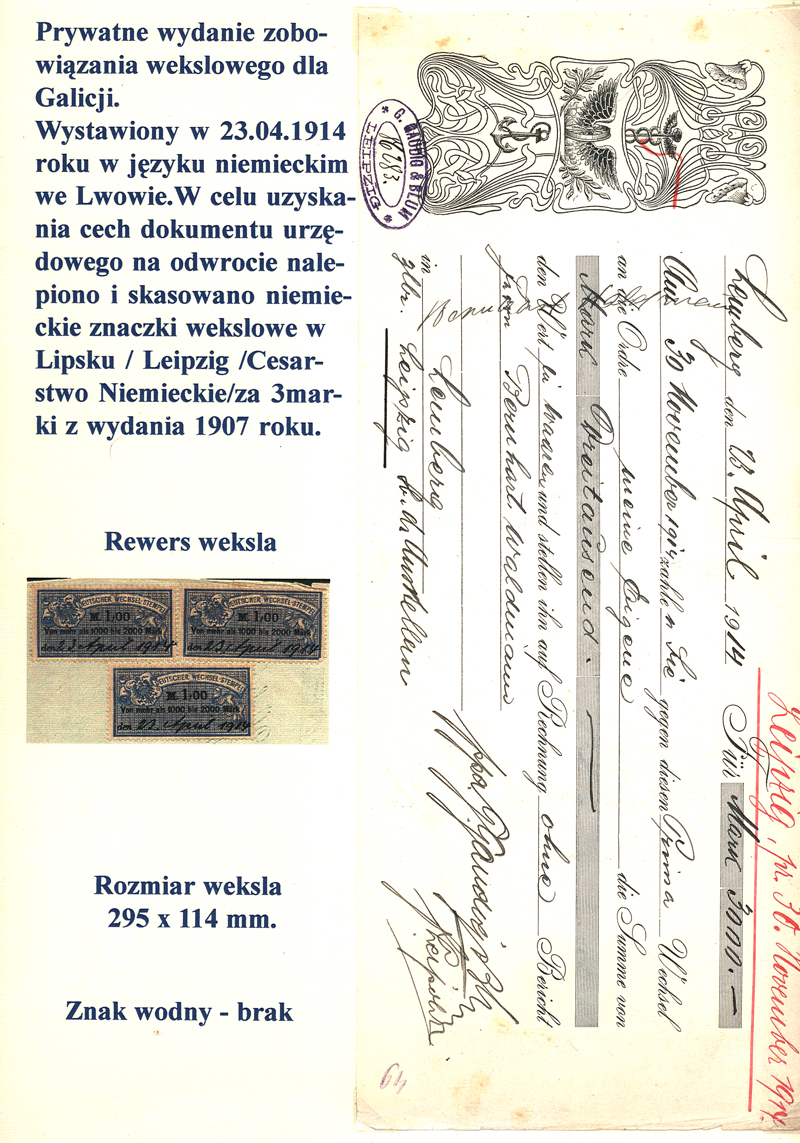 Prywatne wydanie zobo-
wiązania wekslowego dla
Galicji.
Wystawiony w 23.04.1914
roku w języku niemieckim
we Lwowie.W celu uzyska-
nia cech dokumentu urzę-
dowego na odwrocie nale-
piono i skasowano niemie-
ckie znaczki wekslowe w
Lipsku / Leipzig /Cesar-
stwo Niemieckie/za 3mar-
ki z wydania 1907 roku.
Rewers weksla
DEUTSCHER WECHSEL-STEMPEL
M. 1,00
Von mehr als 1000 bis 2000 Mark
den 23 April 1914
DEUTSCHER WECHSEL-STEMPEL
M. 1,00
Von mehr als 1000 bis 2000 Mark
den 23 April 1914
DEUTSCHER WECHSEL-STEMPEL
M. 1,00
Von mehr als 1000 bis 2000 Mark
den 23 April 1914
Rozmiar weksla
295 x 114 mm.
Znak wodny - brak
Leipzig, pr. 30. November 1914.
Lemberg den 23. April 1914 Für Mark 3000.—
30 November 1914 zahlen Sie gegen diesen Prima Wechsel
an die Ordre meine Eigene die Summe von
Mark Dreitausend. —
den Wert in Waren und stellen ihn auf Rechnung ohne Bericht
Bernhart Waldmann
in Lemberg
zlbr. Leipzig
G. GAUDIG & BLUM
LEIPZIG
64